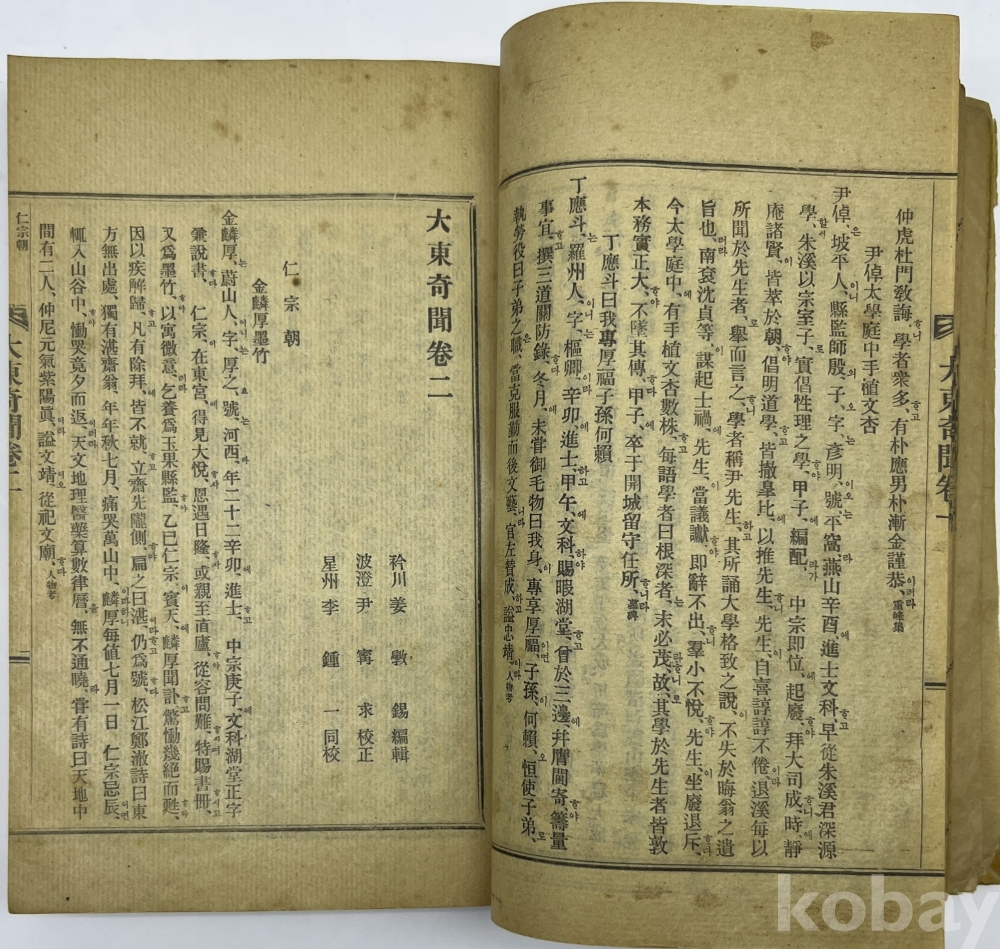 仲虎杜門敎誨하니學者衆多、有朴應男朴漸金謹恭、이러라重峰集
尹倬太學庭中手植文杏
尹倬은坡平人、縣監師殷의子、字는彥明、號는平窩、燕山辛酉에進士文科、早從朱溪君深源
學、朱溪以宗室子로實倡性理之學、甲子에編配、라가中宗即位에起廢、拜大司成、時에靜
庵諸賢이皆萃於朝、倡明道學、皆撤皐比、以推先生、先生이自喜諄諄不倦、退溪每以
所聞於先生者로擧而言之、學者稱尹先生、其所誦大學格致之說이不失於晦翁之遺
旨也、南袞沈貞等이謀起士禍、先生이當議讞、即辭不出、羣小不悅、先生이坐廢退斥、
今太學庭中에有手植文杏數株、每語學者曰根深者는末必茂、故로其學於先生者皆敦
本務實正大、不墜其傳、甲子에卒于開城留守任所、하니라墓碑
丁應斗曰我專厚福子孫何賴
丁應斗는羅州人、字는樞卿、辛卯에進士、甲午에文科、賜暇湖堂、曾於三邊에幷膺閫寄、籌量
事宜、撰三道關防錄、冬月에未嘗御毛物曰我身이專享厚福이면子孫이何賴、恒使子弟로
執勞役曰子弟之職은當克服勤而後文藝、官左贊成、諡忠靖、人物考
大東奇聞卷一
大東奇聞卷二
衿川 姜斅錫 編輯
波澄 尹甯求 校正
星州 李鍾一 同校
仁宗朝
金麟厚墨竹
金麟厚는蔚山人、字는厚之、號는河西、年二十二辛卯에進士、中宗庚子에文科湖堂正字
兼說書、仁宗이在東宮에得見大悅、恩遇日隆、或親至直廬、從容問難、特賜書冊、
又爲墨竹、以寓微意、乞養爲玉果縣監、乙巳仁宗이賓天、麟厚聞訃、驚慟幾絶而甦、
因以疾解歸、凡有除拜、皆不就、立齋先隴側、扁之曰湛、仍爲號、松江鄭澈詩曰東
方無出處、獨有湛齋翁、年年秋七月、痛哭萬山中、麟厚每値七月一日仁宗忌辰、
輒入山谷中、慟哭竟夕而返、天文地理醫藥算數律曆、無不通曉、嘗有詩曰天地中
間有二人、仲尼元氣紫陽眞、諡文靖、從祀文廟、人物考
仁宗朝
大東奇聞卷二
kobay